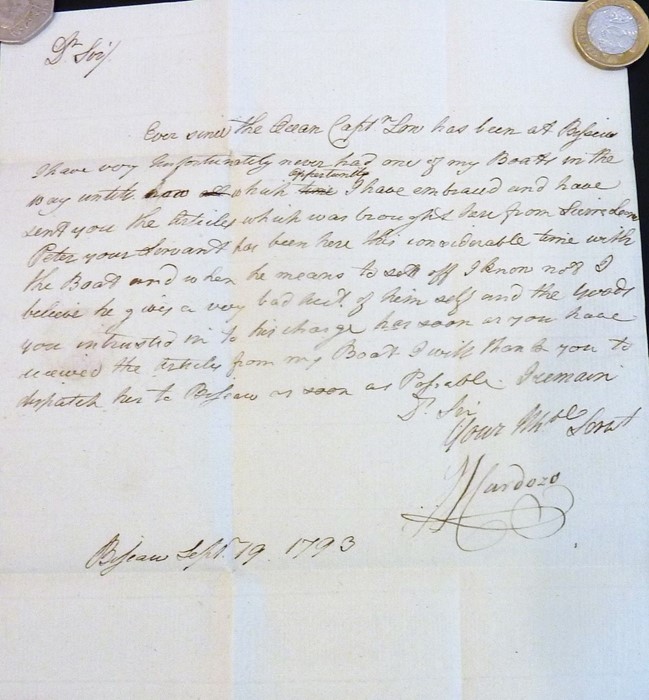 Dr. Sir/
Ever since the Ocean Captn Low has been at Bissau
I have very Unfortunately never had one of my Boats in the
way untill now all which time opportunity I have embraced and have
sent you the Articles which was brought here from Sierra Leone
Peter your Servant has been here this considerable time with
the Boat and when he means to sett off I know not I
believe he gives a very bad acct. of him self and the Goods
you intrusted in to his charge has soon as you have
received the Articles from my Boat I will thank you to
dispatch her to Bissau as soon as Possable. I remain
Dr. Sir
Your Mble Servt
Cardozo
Bissau Septr. 19. 1793